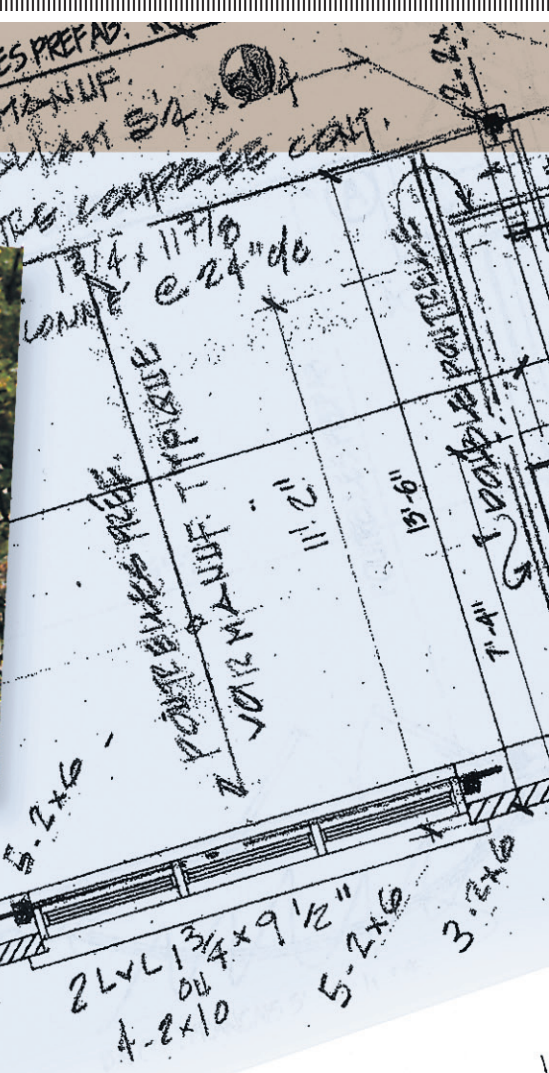 ES PREFAB.
MANUF.
5/4 x
COMPOSÉE CONT.
1 3/4 x 11 7/8
@ 24" d/c
2-2x
POUTRELLES PREF.
VOIR MANUF. TYPIQUE
11'.2"
13'-6"
7'-4"
POUTRELLE
5-2x6
2 LVL 1 3/4 x 9 1/2"
OU
4-2x10
5-2x6
3-2x6